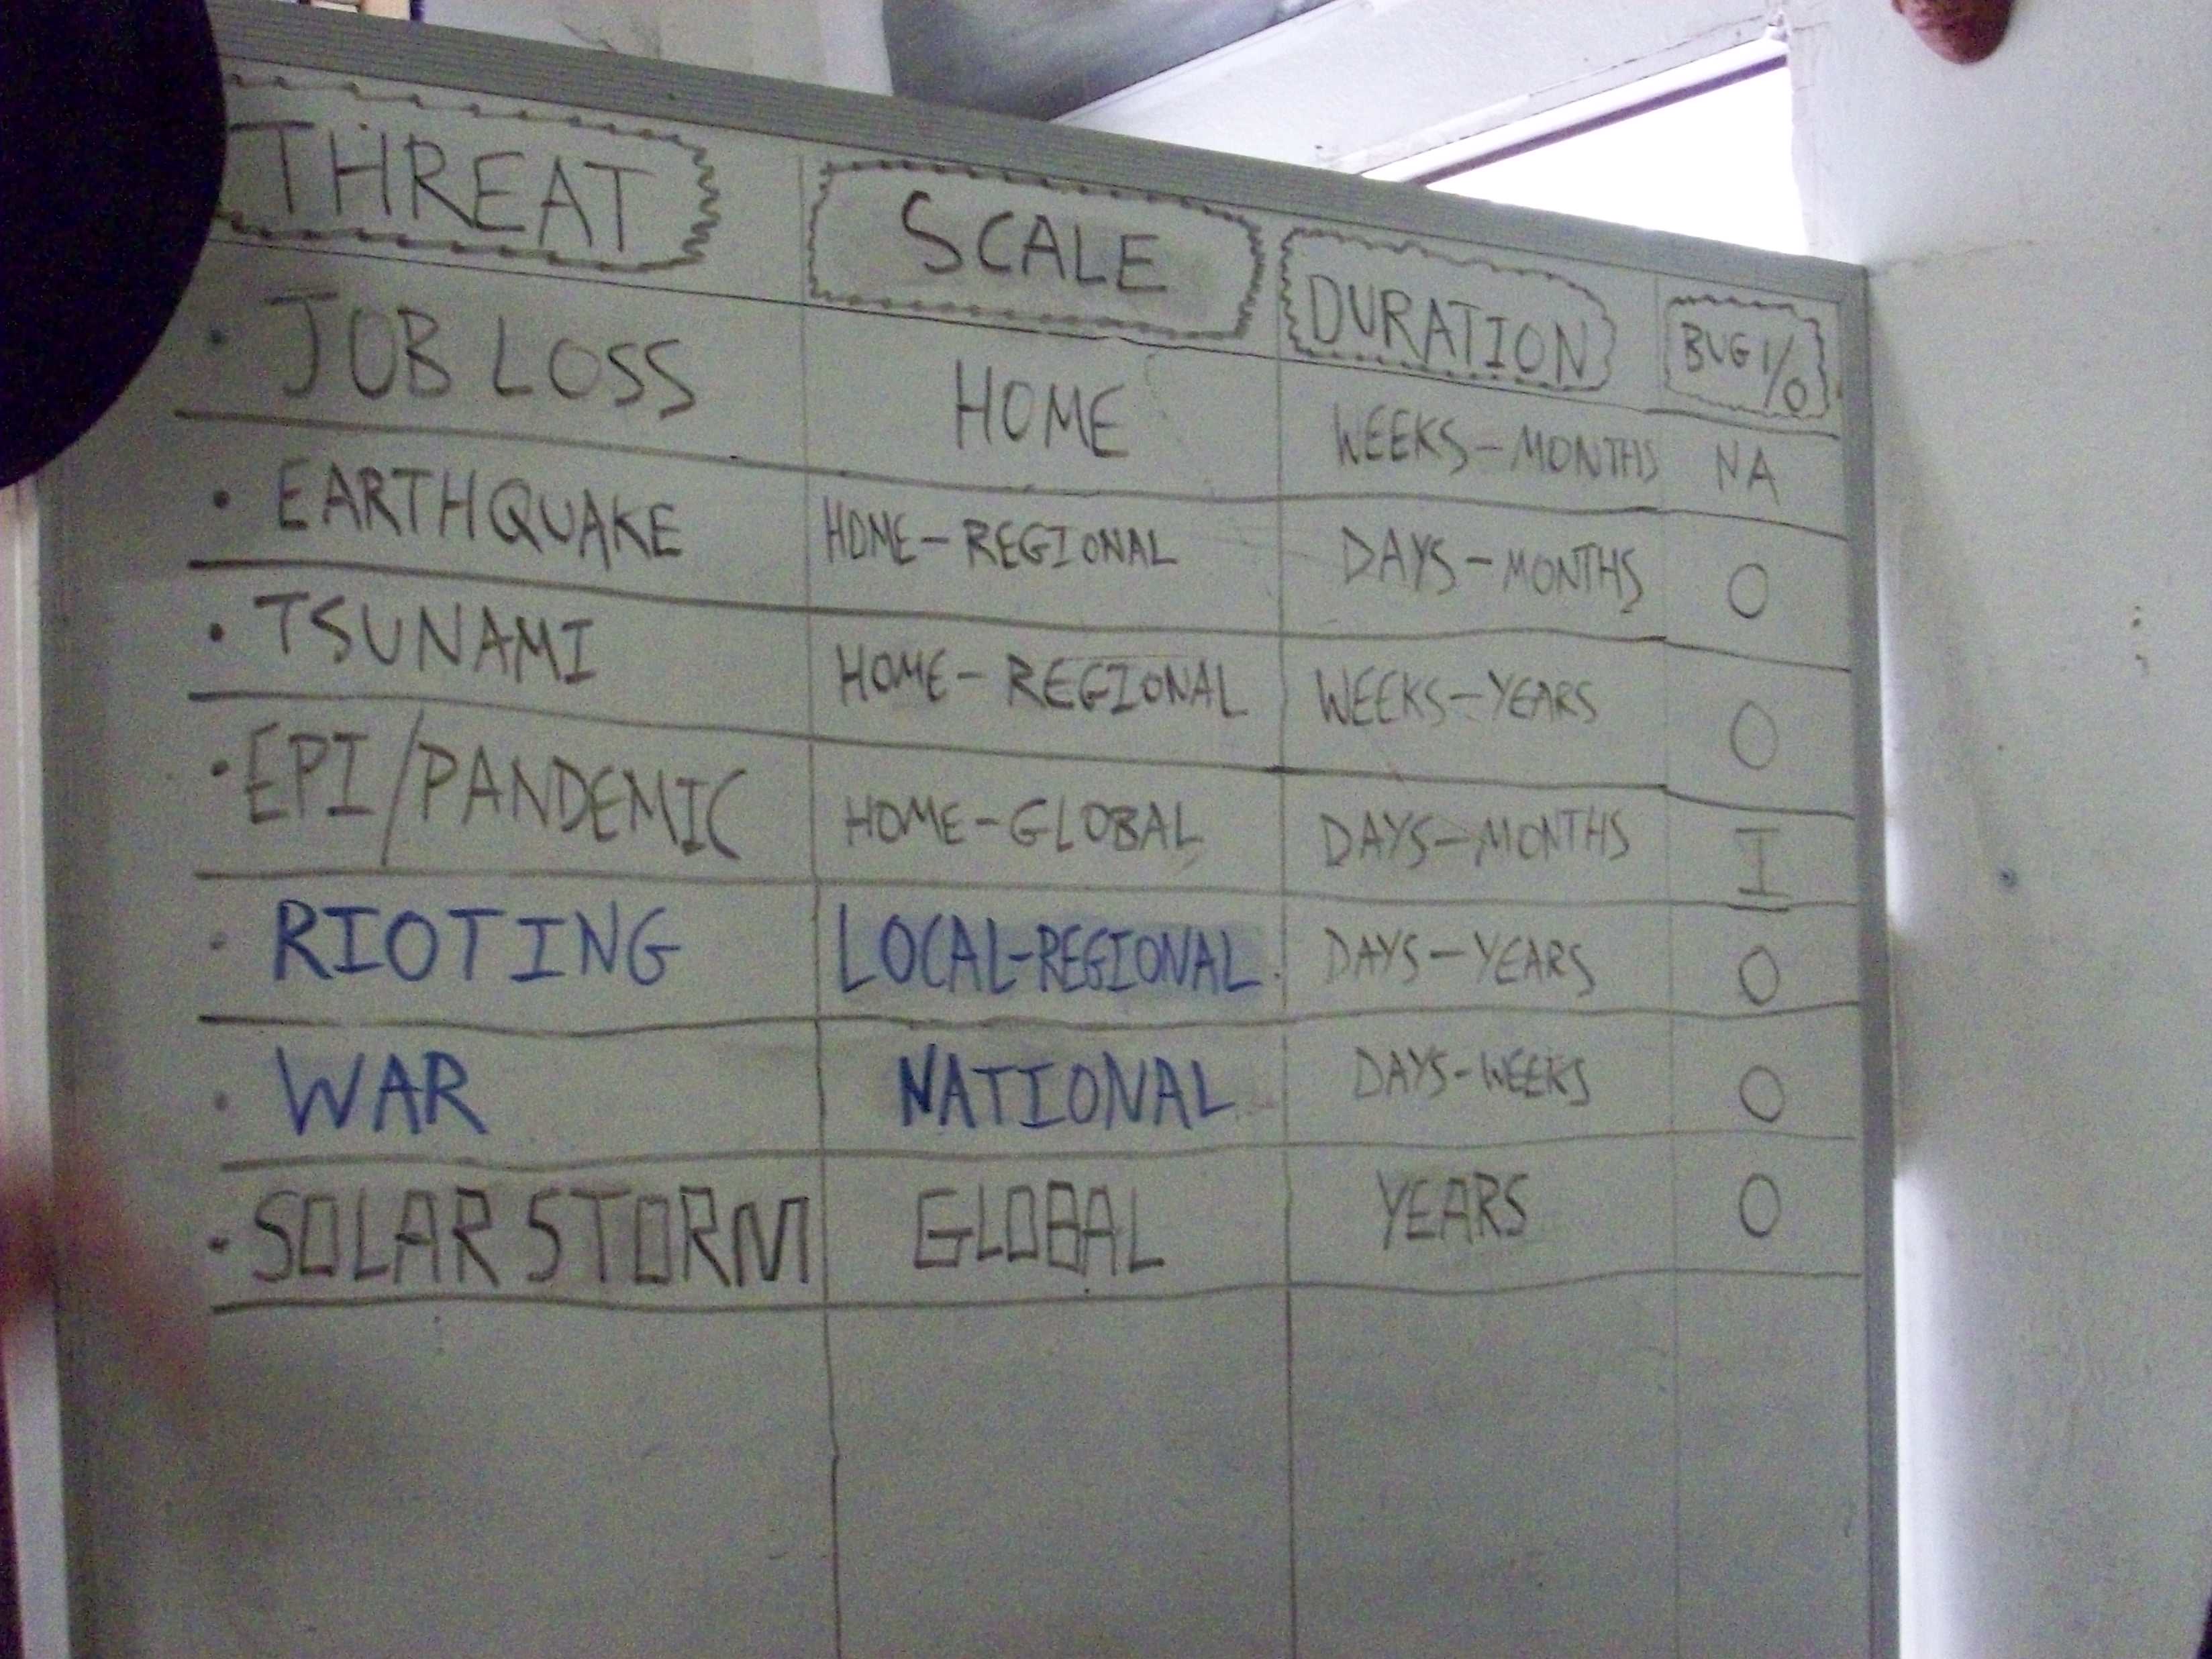 THREAT SCALE DURATION BUG I/O
• JOB LOSS HOME WEEKS-MONTHS NA
• EARTHQUAKE HOME-REGIONAL DAYS-MONTHS O
• TSUNAMI HOME-REGIONAL WEEKS-YEARS O
• EPI/PANDEMIC HOME-GLOBAL DAYS-MONTHS I
• RIOTING LOCAL-REGIONAL DAYS-YEARS O
• WAR NATIONAL DAYS-WEEKS O
• SOLAR STORM GLOBAL YEARS O